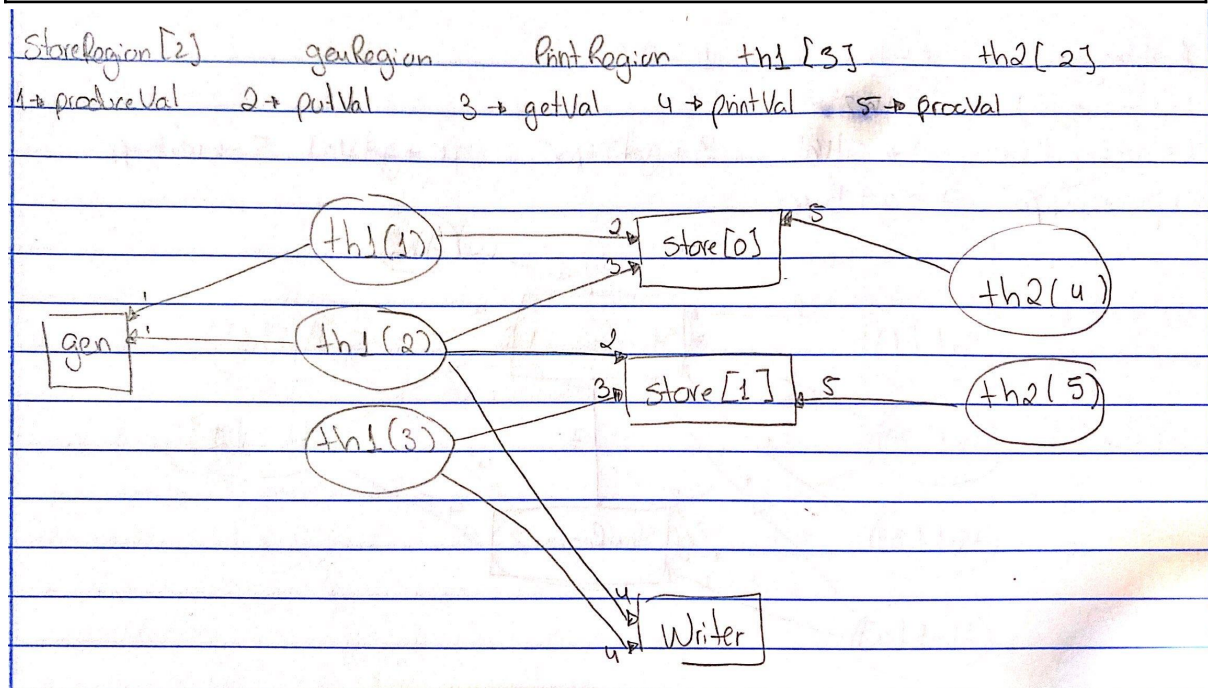 StoreRegion [2] genRegion PrintRegion th1 [3] th2[2]
1→ produceVal 2→ putVal 3→ getVal 4→ printVal 5→ procVal
th1(1) 2 store[0] 5
3
th2(4)
1
gen 1 th1(2) 2
3 store[1] 5 th2(5)
th1(3)
4
4 Writer